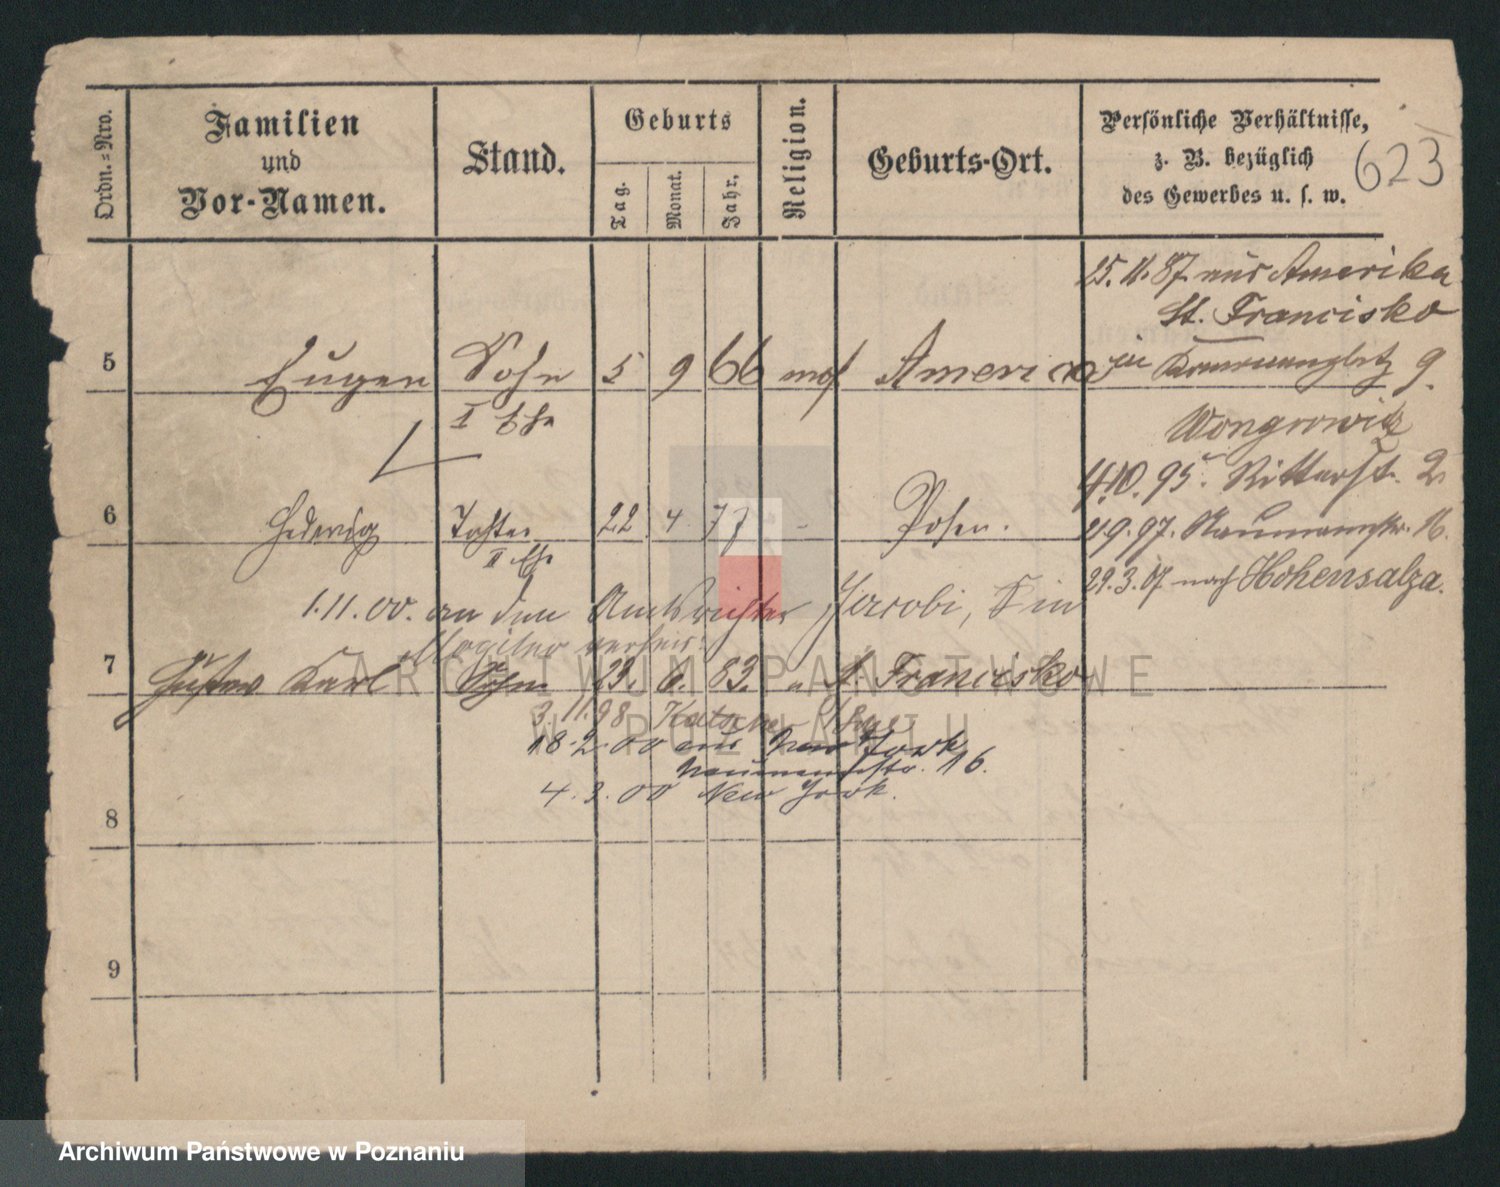 Ordn.-Nro.
Familien und Vor-Namen.
Stand.
Geburts
Tag. Monat. Jahr.
Religion.
Geburts-Ort.
Persönliche Verhältnisse,
z. B. bezüglich
des Gewerbes u. s. w.
623
25.11.87 aus Amerika
St. Francisko
5 Eugen Sohn 5 9 66 mos America
I Ehe
9.
Wongrowitz
4.10.95. Ritterst. 2
6 Hedwig Tochter 22 4 77 - Posen.
II Ehe
21.9.97. Naumannstr. 16.
29.3.07 nach Hohensalza.
1.11.00. an den Amtsrichter Jacobi,
Mogilno verheir.
7 Gustav Karl Sohn 23. 6. 83. " St. Francisko
3.11.98
18.2.00 aus New York
Naumannstr. 16.
4.3.00 New York.
8
9
ARCHIWUM PAŃSTWOWE
W POZNANIU
Archiwum Państwowe w Poznaniu